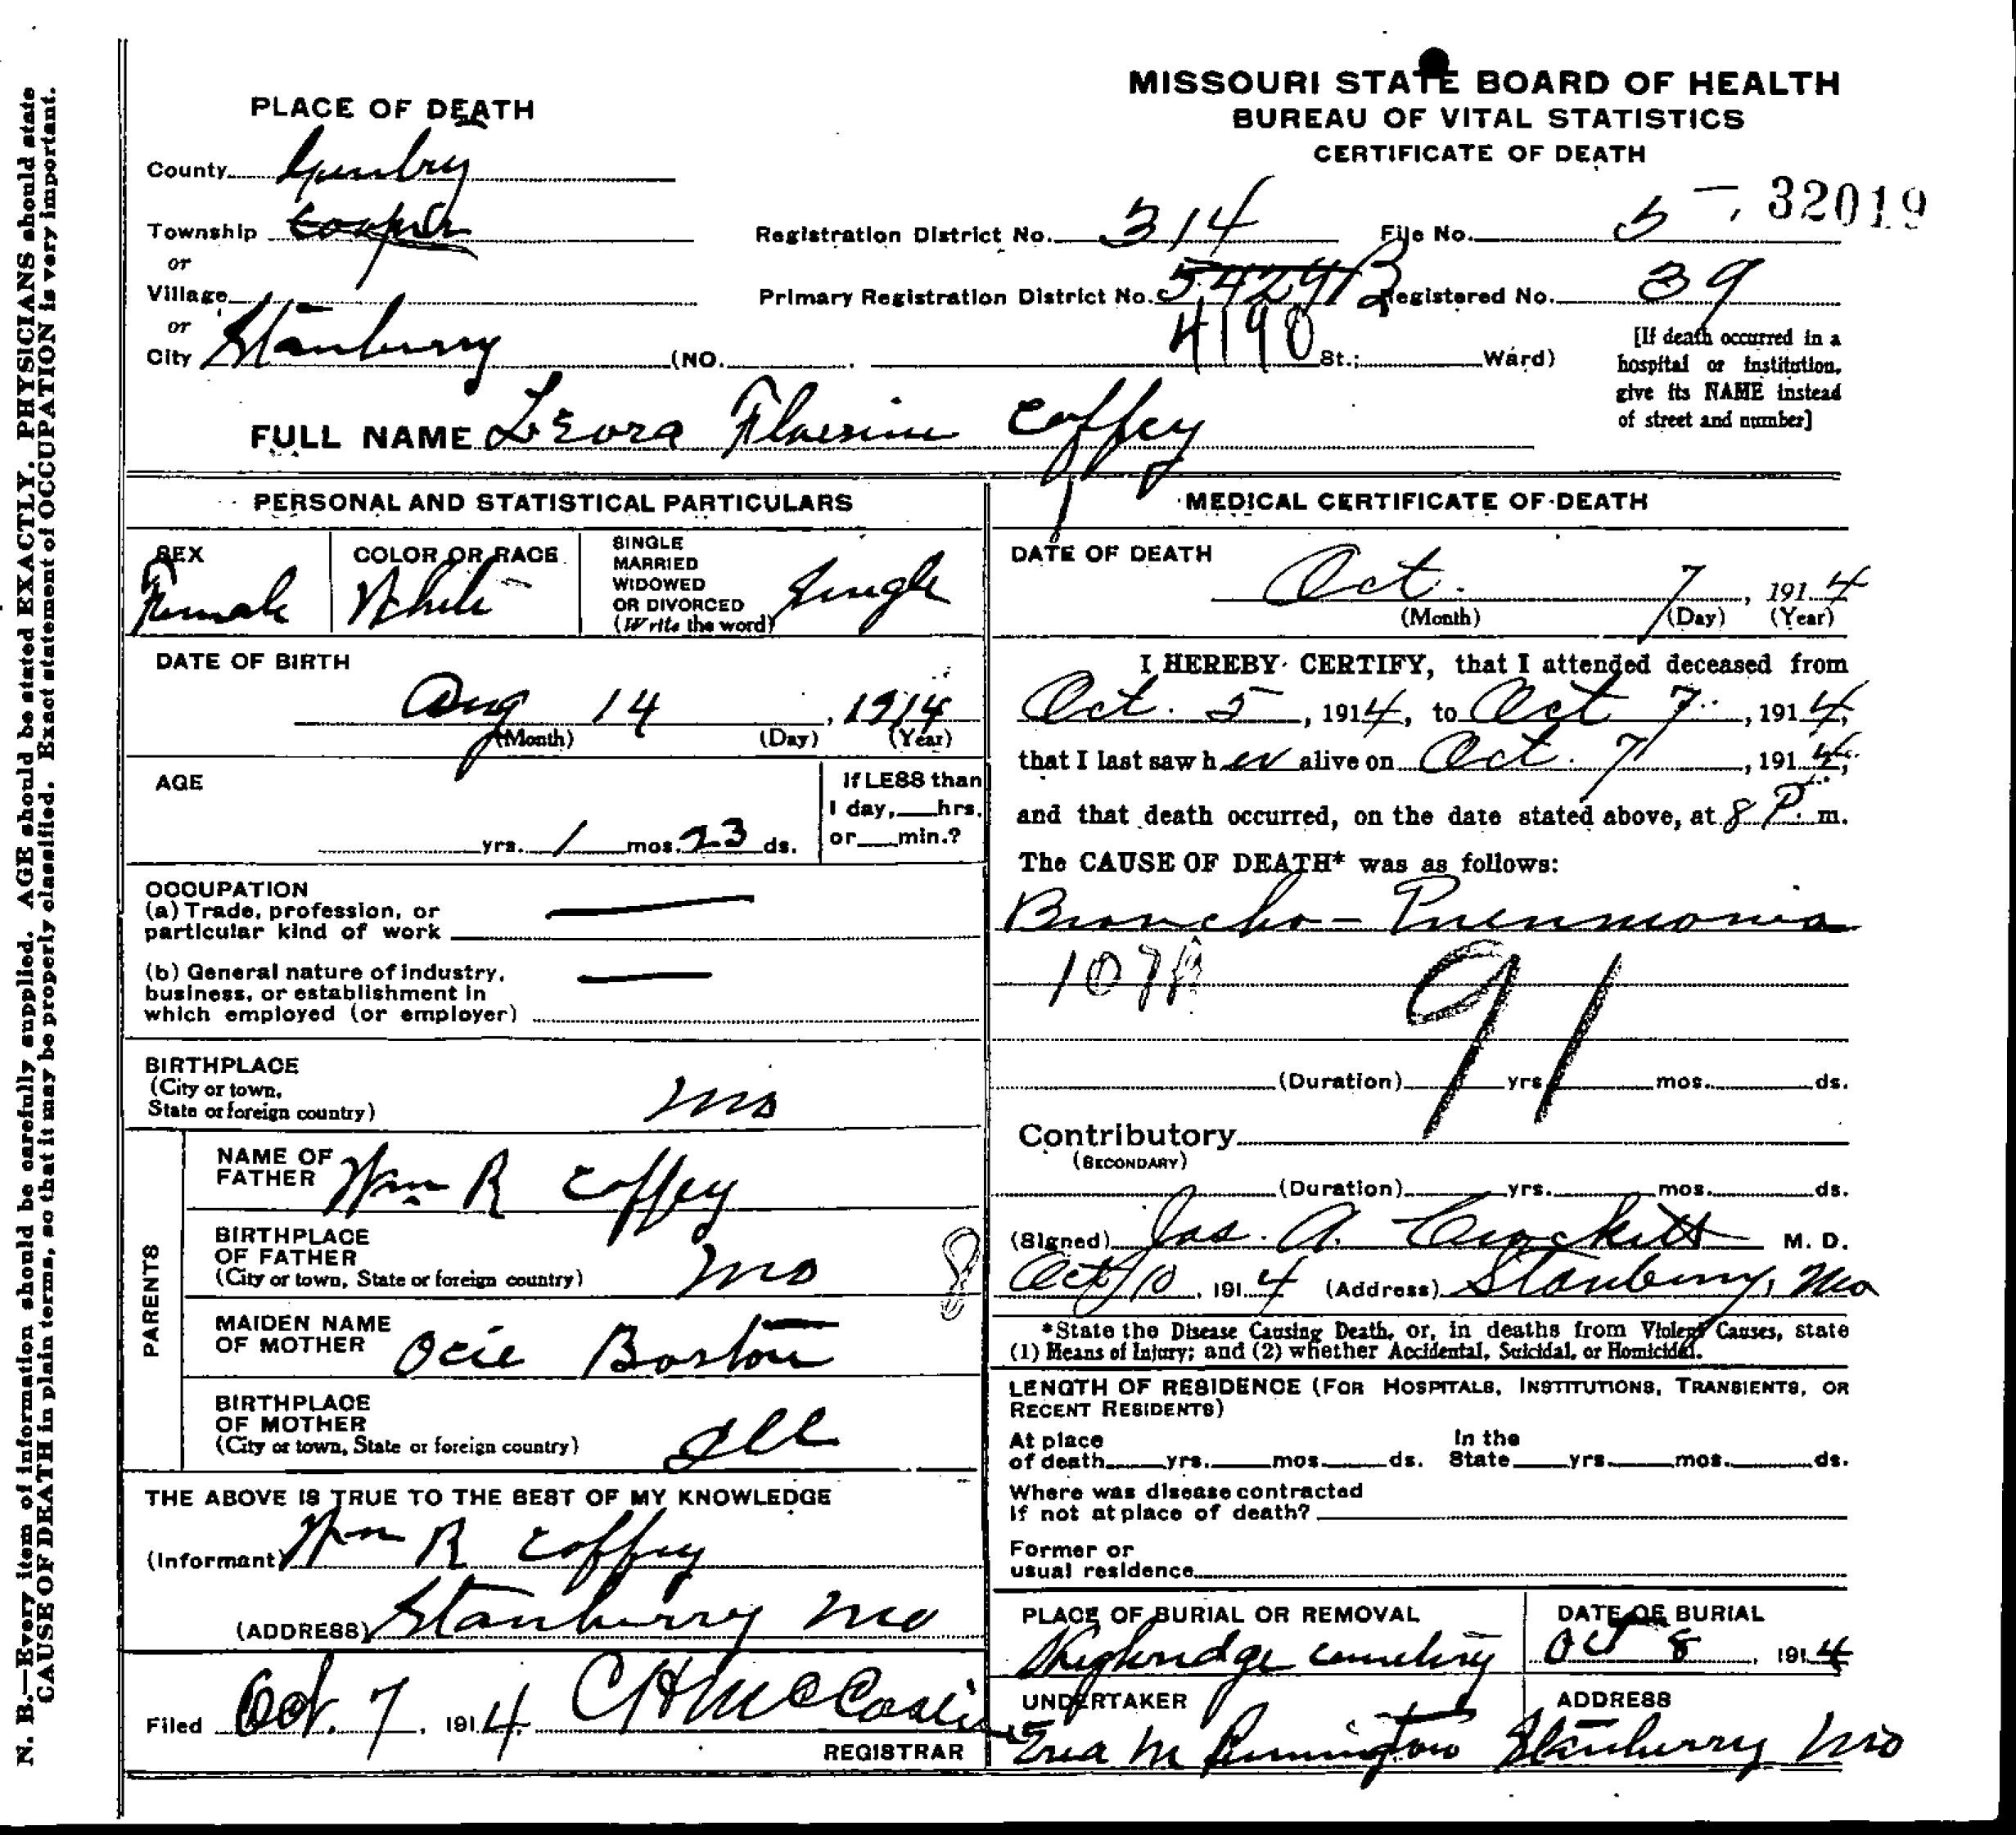 MISSOURI STATE BOARD OF HEALTH
BUREAU OF VITAL STATISTICS
CERTIFICATE OF DEATH
PLACE OF DEATH
County Gentry
Township Cooper
or
Village
or
City Stanberry (NO. St.; Ward)
Registration District No. 314 File No. 5 32019
Primary Registration District No. 5429B Registered No. 39
4190
[If death occurred in a
hospital or institution,
give its NAME instead
of street and number]
FULL NAME Leora Coffey
PERSONAL AND STATISTICAL PARTICULARS
SEX Female
COLOR OR RACE White
SINGLE
MARRIED
WIDOWED
OR DIVORCED
(Write the word) Single
DATE OF BIRTH
Aug 14, 1914
(Month) (Day) (Year)
AGE
yrs. 1 mos. 23 ds.
If LESS than
1 day, hrs.
or min.?
OCCUPATION
(a) Trade, profession, or
particular kind of work
(b) General nature of industry,
business, or establishment in
which employed (or employer)
BIRTHPLACE
(City or town,
State or foreign country) Mo
PARENTS
NAME OF
FATHER Wm R Coffey
BIRTHPLACE
OF FATHER
(City or town, State or foreign country) Mo
MAIDEN NAME
OF MOTHER Ocie Boston
BIRTHPLACE
OF MOTHER
(City or town, State or foreign country) Ill
THE ABOVE IS TRUE TO THE BEST OF MY KNOWLEDGE
(Informant) Wm R Coffey
(ADDRESS) Stanberry Mo
Filed Oct. 7, 1914
REGISTRAR
MEDICAL CERTIFICATE OF DEATH
DATE OF DEATH
Oct. 7, 1914
(Month) (Day) (Year)
I HEREBY CERTIFY, that I attended deceased from
Oct. 5, 1914, to Oct 7, 1914,
that I last saw her alive on Oct. 7, 1914,
and that death occurred, on the date stated above, at 8 P. m.
The CAUSE OF DEATH* was as follows:
Broncho-Pneumonia
107A 91
(Duration) yrs. mos. ds.
Contributory
(SECONDARY)
(Duration) yrs. mos. ds.
(Signed) Jas. A. Crockett M. D.
Oct 10, 1914 (Address) Stanberry, Mo
*State the Disease Causing Death, or, in deaths from Violent Causes, state
(1) Means of Injury; and (2) whether Accidental, Suicidal, or Homicidal.
LENGTH OF RESIDENCE (FOR HOSPITALS, INSTITUTIONS, TRANSIENTS, OR
RECENT RESIDENTS)
At place
of death yrs. mos. ds.
In the
State yrs. mos. ds.
Where was disease contracted
if not at place of death?
Former or
usual residence
PLACE OF BURIAL OR REMOVAL
Highridge Cemetery
DATE OF BURIAL
Oct 8, 1914
UNDERTAKER
M Pennington
ADDRESS
Stanberry Mo
N. B.—Every item of information should be carefully supplied. AGE should be stated EXACTLY. PHYSICIANS should state
CAUSE OF DEATH in plain terms, so that it may be properly classified. Exact statement of OCCUPATION is very important.